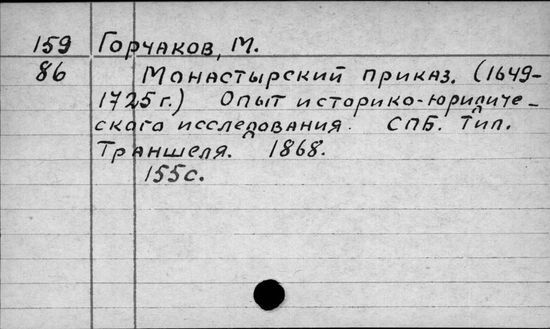 159 Горчаков, М.
86 Монастырский приказ. (1649-
1725 г.) Опыт историко-юридиче-
ского исследования. СПБ. Тип.
Траншеля. 1868.
155с.